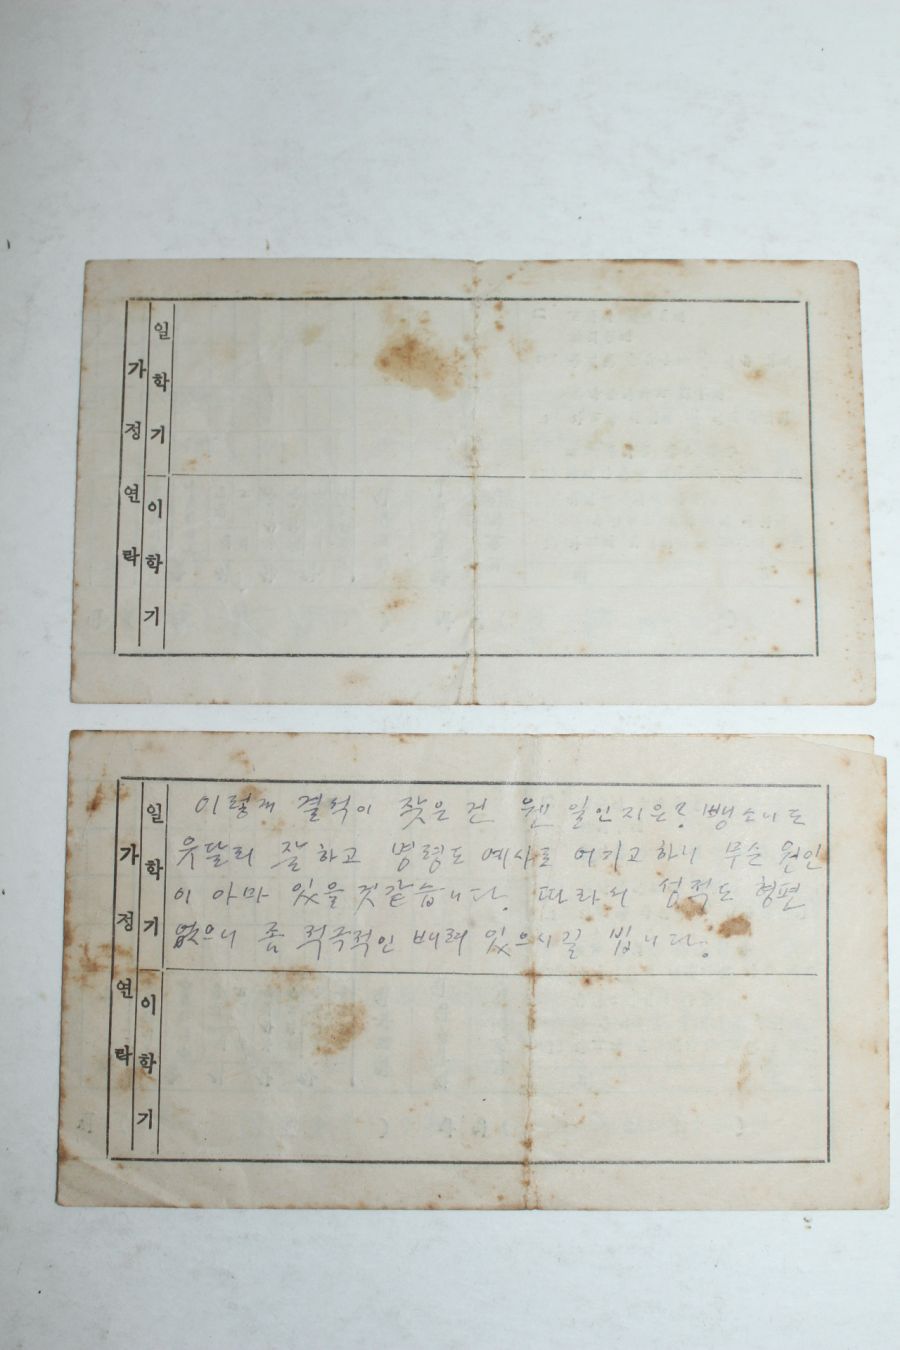 가정연락
일학기
이학기
가정연락
일학기
이렇게 결석이 잦은 건 웬 일인지요? 뺑소니도
유달리 잘하고 명령도 예사로 어기고 하니 무슨 원인
이 아마 있을것같습니다. 따라서 성적도 형편
없으니 좀 적극적인 배려 있으시길 빕니다.
이학기